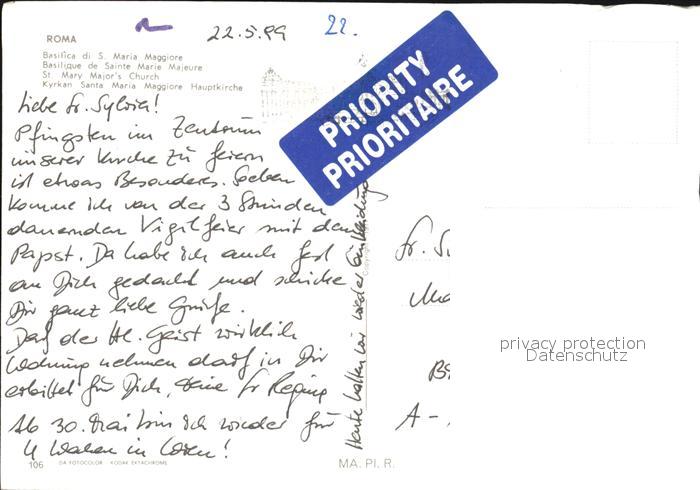 22.5.99
22.
ROMA
Basilica di S. Maria Maggiore
Basilique de Sainte Marie Majeure
St. Mary Major's Church
Kyrkan Santa Maria Maggiore Hauptkirche
PRIORITY
PRIORITAIRE
Liebe Sr. Sylvia!
Pfingsten im Zentrum
unserer Kirche zu feiern
ist etwas Besonderes. Soeben
komme ich von der 3 Stunden
dauernden Vigilfeier mit dem
Papst. Da habe ich auch fest
an Dich gedacht und schicke
Dir ganz liebe Grüße.
Daß der Hl. Geist wirklich
Wohnung nehmen darf in Dir
erbittet für Dich, Deine Sr Regina
Ab 30. Mai bin ich wieder für
4 Wochen in Wien!
Heute hatten wir wieder Einkleidung
Sr.
A-
privacy protection
Datenschutz
106
DA FOTOCOLOR - KODAK EKTACHROME
MA. PI. R.